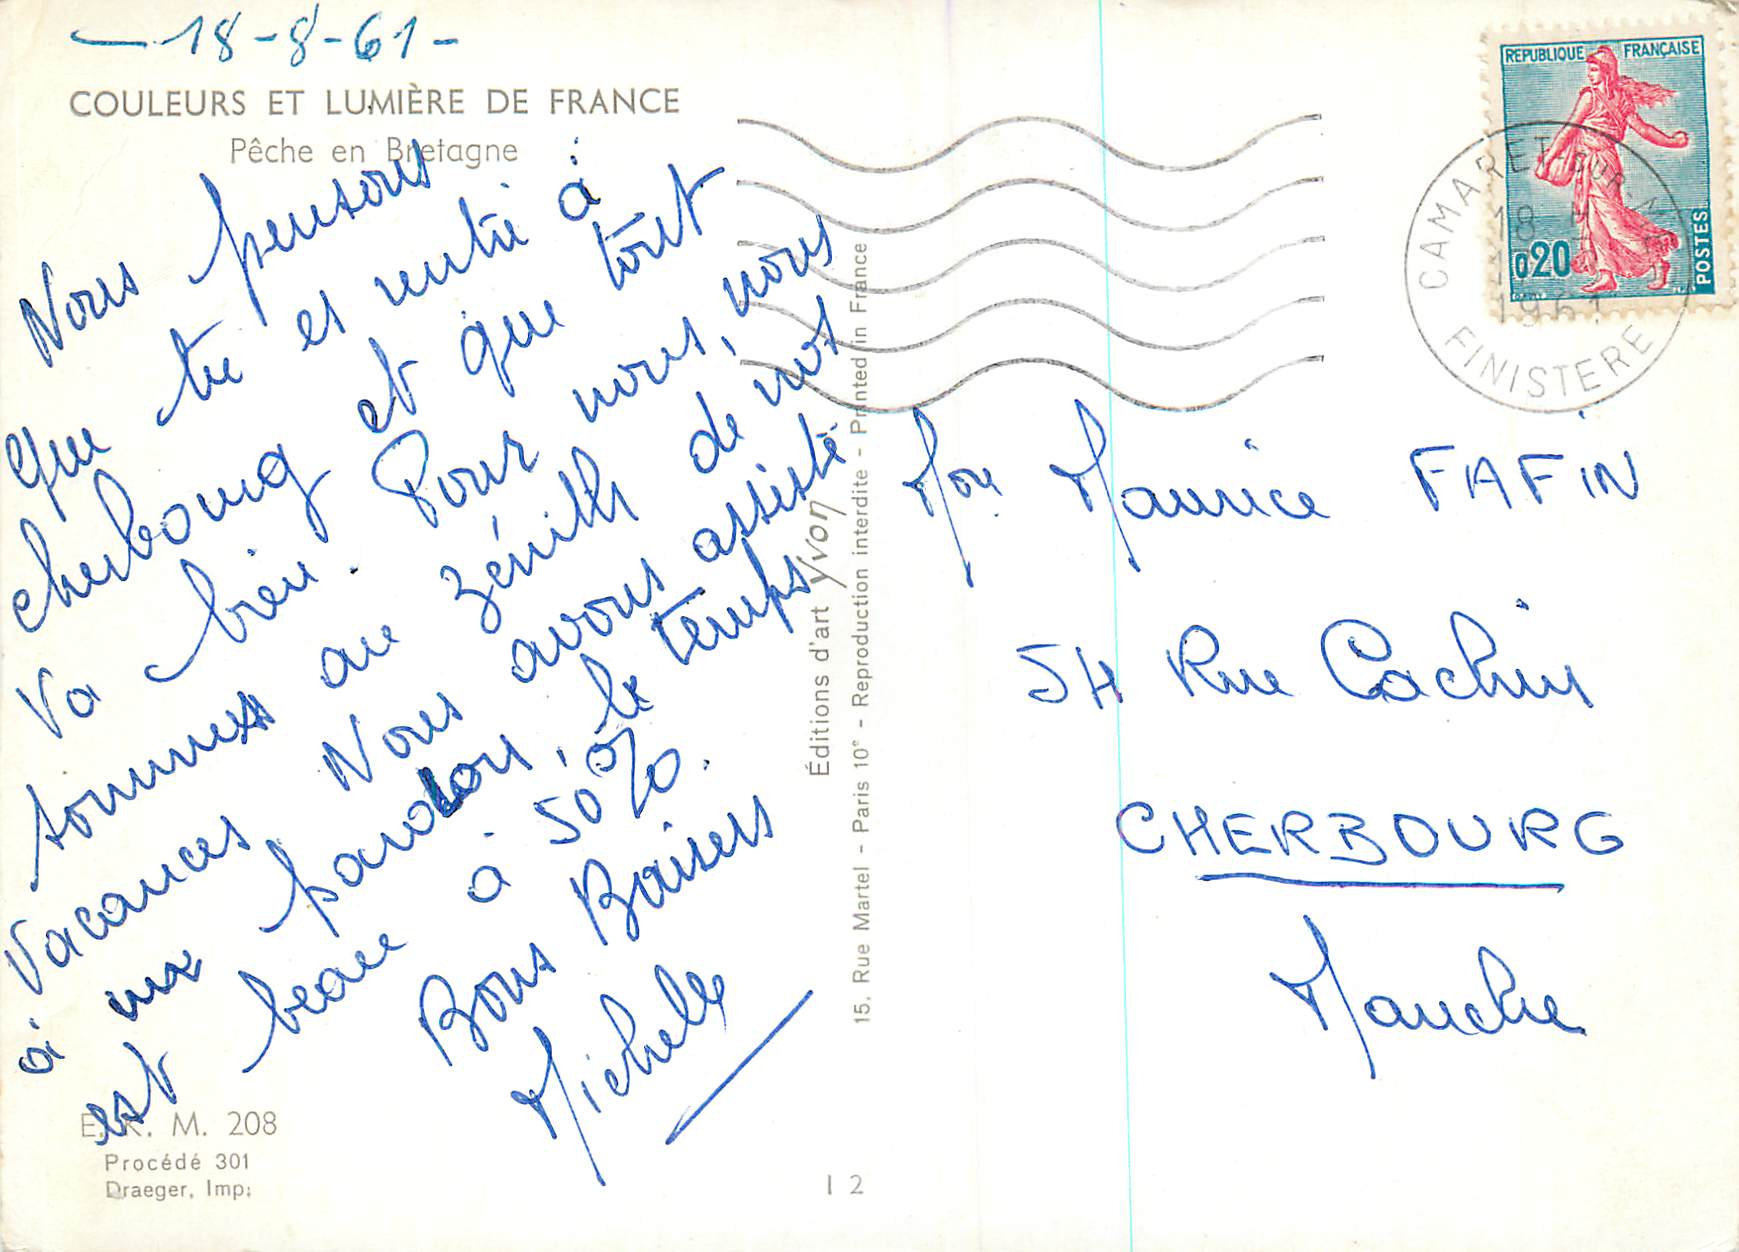 -18-8-61-
COULEURS ET LUMIÈRE DE FRANCE
Pêche en Bretagne
Nous pensons
que tu es rentré à
cherbourg et que tout
va bien. Pour nous, nous
sommes au zénith de nos
vacances Nous avons assisté
à un pardon, le temps
est beau à 50%.
Bons Baisers
Michelle
E. K. M. 208
Procédé 301
Draeger, Imp;
Éditions d'art Yvon
15, Rue Martel - Paris 10e - Reproduction interdite - Printed in France
I 2
REPUBLIQUE FRANÇAISE
0,20
POSTES
CAMARET-SUR-MER
18
1961
FINISTERE
Mon. Maurice FAFIN
54 Rue Cachin
CHERBOURG
Manche